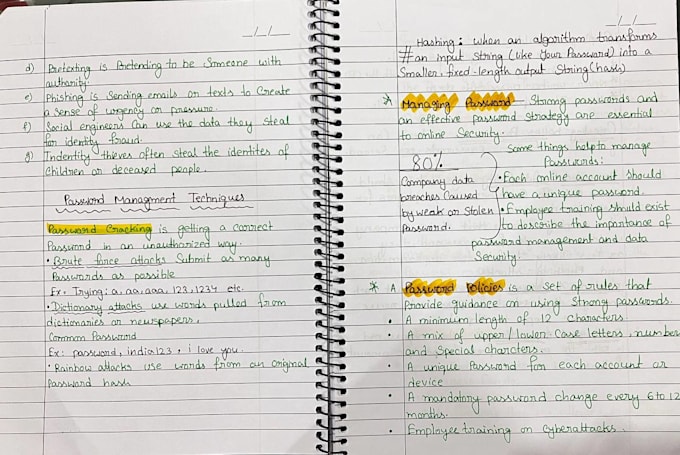 _/_/_
d) Pretexting is Pretending to be Someone with
authority.
e) Phishing is Sending emails or texts to Create
a sense of urgency or pressure.
f) Social engineers Can use the data they steal
for identity fraud.
g) Indentity thieves often steal the identites of
Children or deceased people.
Password Managment Techniques
Password Cracking is getting a correct
Password in an unauthorized way.
• Brute force attacks Submit as many
Passwords as possible
Ex. Trying: a, aa, aaa, 123, 1234 etc.
• Dictionary attacks use words pulled from
dictionaries or newspapers.
Common Password
Ex: password, india123, i love you.
• Rainbow attacks use words from an original
Password hash
_/_/_
Hashing: when an algorithm transforms
# an input String (like Your Password) into a
Smaller, fixed-length output String (hash)
* Managing Password Strong passwords and
an effective password strategy are essential
to online Security.
Some things help to manage
Passwords:
80%
Company data
breaches Caused
by weak or Stolen
Password.
• Each online account Should
have a unique password.
• Employee training should exist
to describe the importance of
password management and data
Security.
* A Password Policies is a set of rules that
Provide guidance on using Strong passwords.
• A minimum length of 12 characters
• A mix of upper/lower Case letters, number
and Special charcters.
• A unique Password for each account or
device
• A mandatory password change every 6 to 12
months.
• Employee training on Cyberattacks.